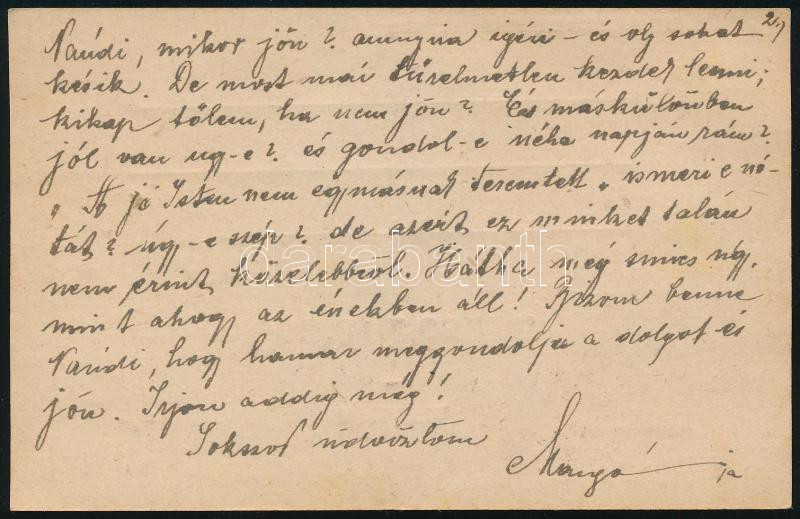 2.)
Nándi, mikor jön? annyira igéri - és oly sokát
késik. De most már türelmetlen kezdek lenni;
kikap tőlem, ha nem jön? És máskülönben
jól van ugy-e? és gondol-e néha napján rám?
„A jó Isten nem egymásnak teremtett„ ismeri e nó-
tát? úgy-e szép? de azért ez minket talán
nem érint közelebbről. Hátha még sincs úgy,
mint ahogy az énekben áll! Bizom benne
Nándi, hogy hamar meggondolja a dolgot és
jön. Irjon addig még!
Sokszor üdvözlöm
Mangó ja
darabanth.com